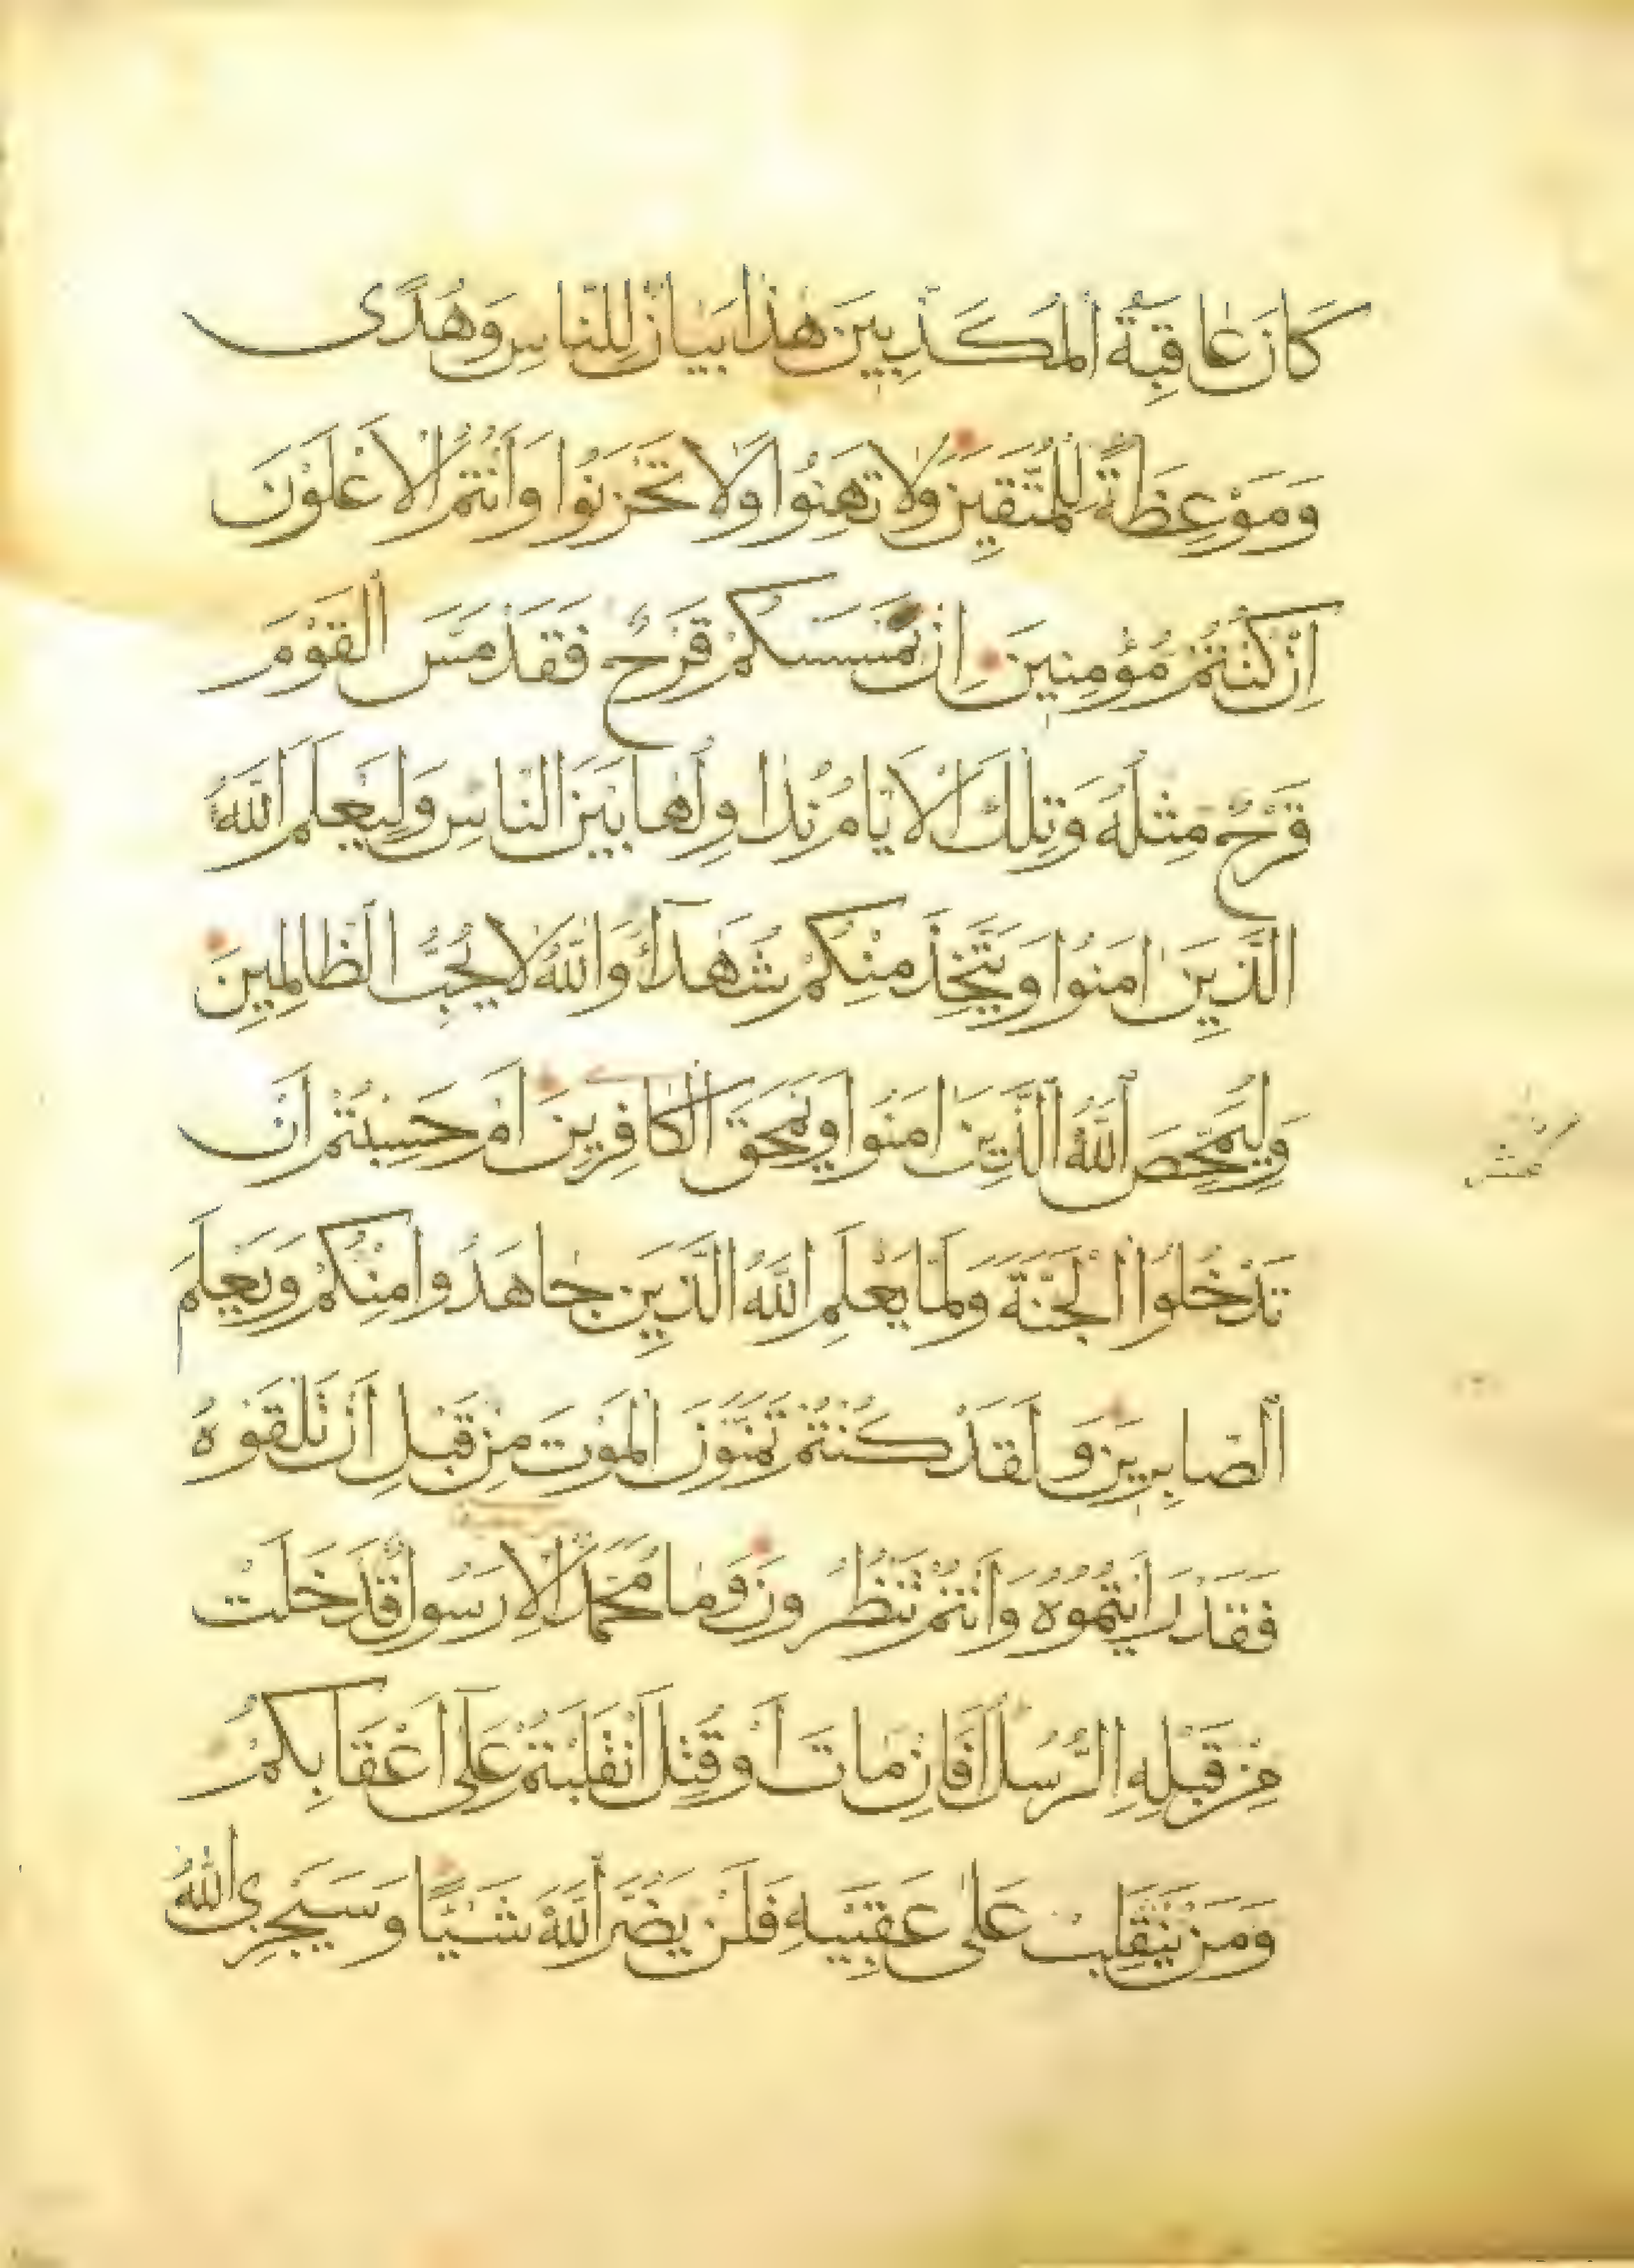 كَانَ عَاقِبَةُ الْمُكَذِّبِينَ هٰذَا بَيَانٌ لِلنَّاسِ وَهُدًى
وَمَوْعِظَةٌ لِلْمُتَّقِينَ وَلَا تَهِنُوا وَلَا تَحْزَنُوا وَأَنْتُمُ الْأَعْلَوْنَ
إِنْ كُنْتُمْ مُؤْمِنِينَ إِنْ يَمْسَسْكُمْ قَرْحٌ فَقَدْ مَسَّ الْقَوْمَ
قَرْحٌ مِثْلُهُ وَتِلْكَ الْأَيَّامُ نُدَاوِلُهَا بَيْنَ النَّاسِ وَلِيَعْلَمَ اللَّهُ
الَّذِينَ اٰمَنُوا وَيَتَّخِذَ مِنْكُمْ شُهَدَآءَ وَاللَّهُ لَا يُحِبُّ الظَّالِمِينَ
وَلِيُمَحِّصَ اللَّهُ الَّذِينَ اٰمَنُوا وَيَمْحَقَ الْكَافِرِينَ أَمْ حَسِبْتُمْ أَنْ
تَدْخُلُوا الْجَنَّةَ وَلَمَّا يَعْلَمِ اللَّهُ الَّذِينَ جَاهَدُوا مِنْكُمْ وَيَعْلَمَ
الصَّابِرِينَ وَلَقَدْ كُنْتُمْ تَمَنَّوْنَ الْمَوْتَ مِنْ قَبْلِ أَنْ تَلْقَوْهُ
فَقَدْ رَأَيْتُمُوهُ وَأَنْتُمْ تَنْظُرُونَ وَمَا مُحَمَّدٌ إِلَّا رَسُولٌ قَدْ خَلَتْ
مِنْ قَبْلِهِ الرُّسُلُ أَفَإِنْ مَاتَ أَوْ قُتِلَ انْقَلَبْتُمْ عَلٰى أَعْقَابِكُمْ
وَمَنْ يَنْقَلِبْ عَلٰى عَقِبَيْهِ فَلَنْ يَضُرَّ اللَّهَ شَيْئًا وَسَيَجْزِى اللَّهُ